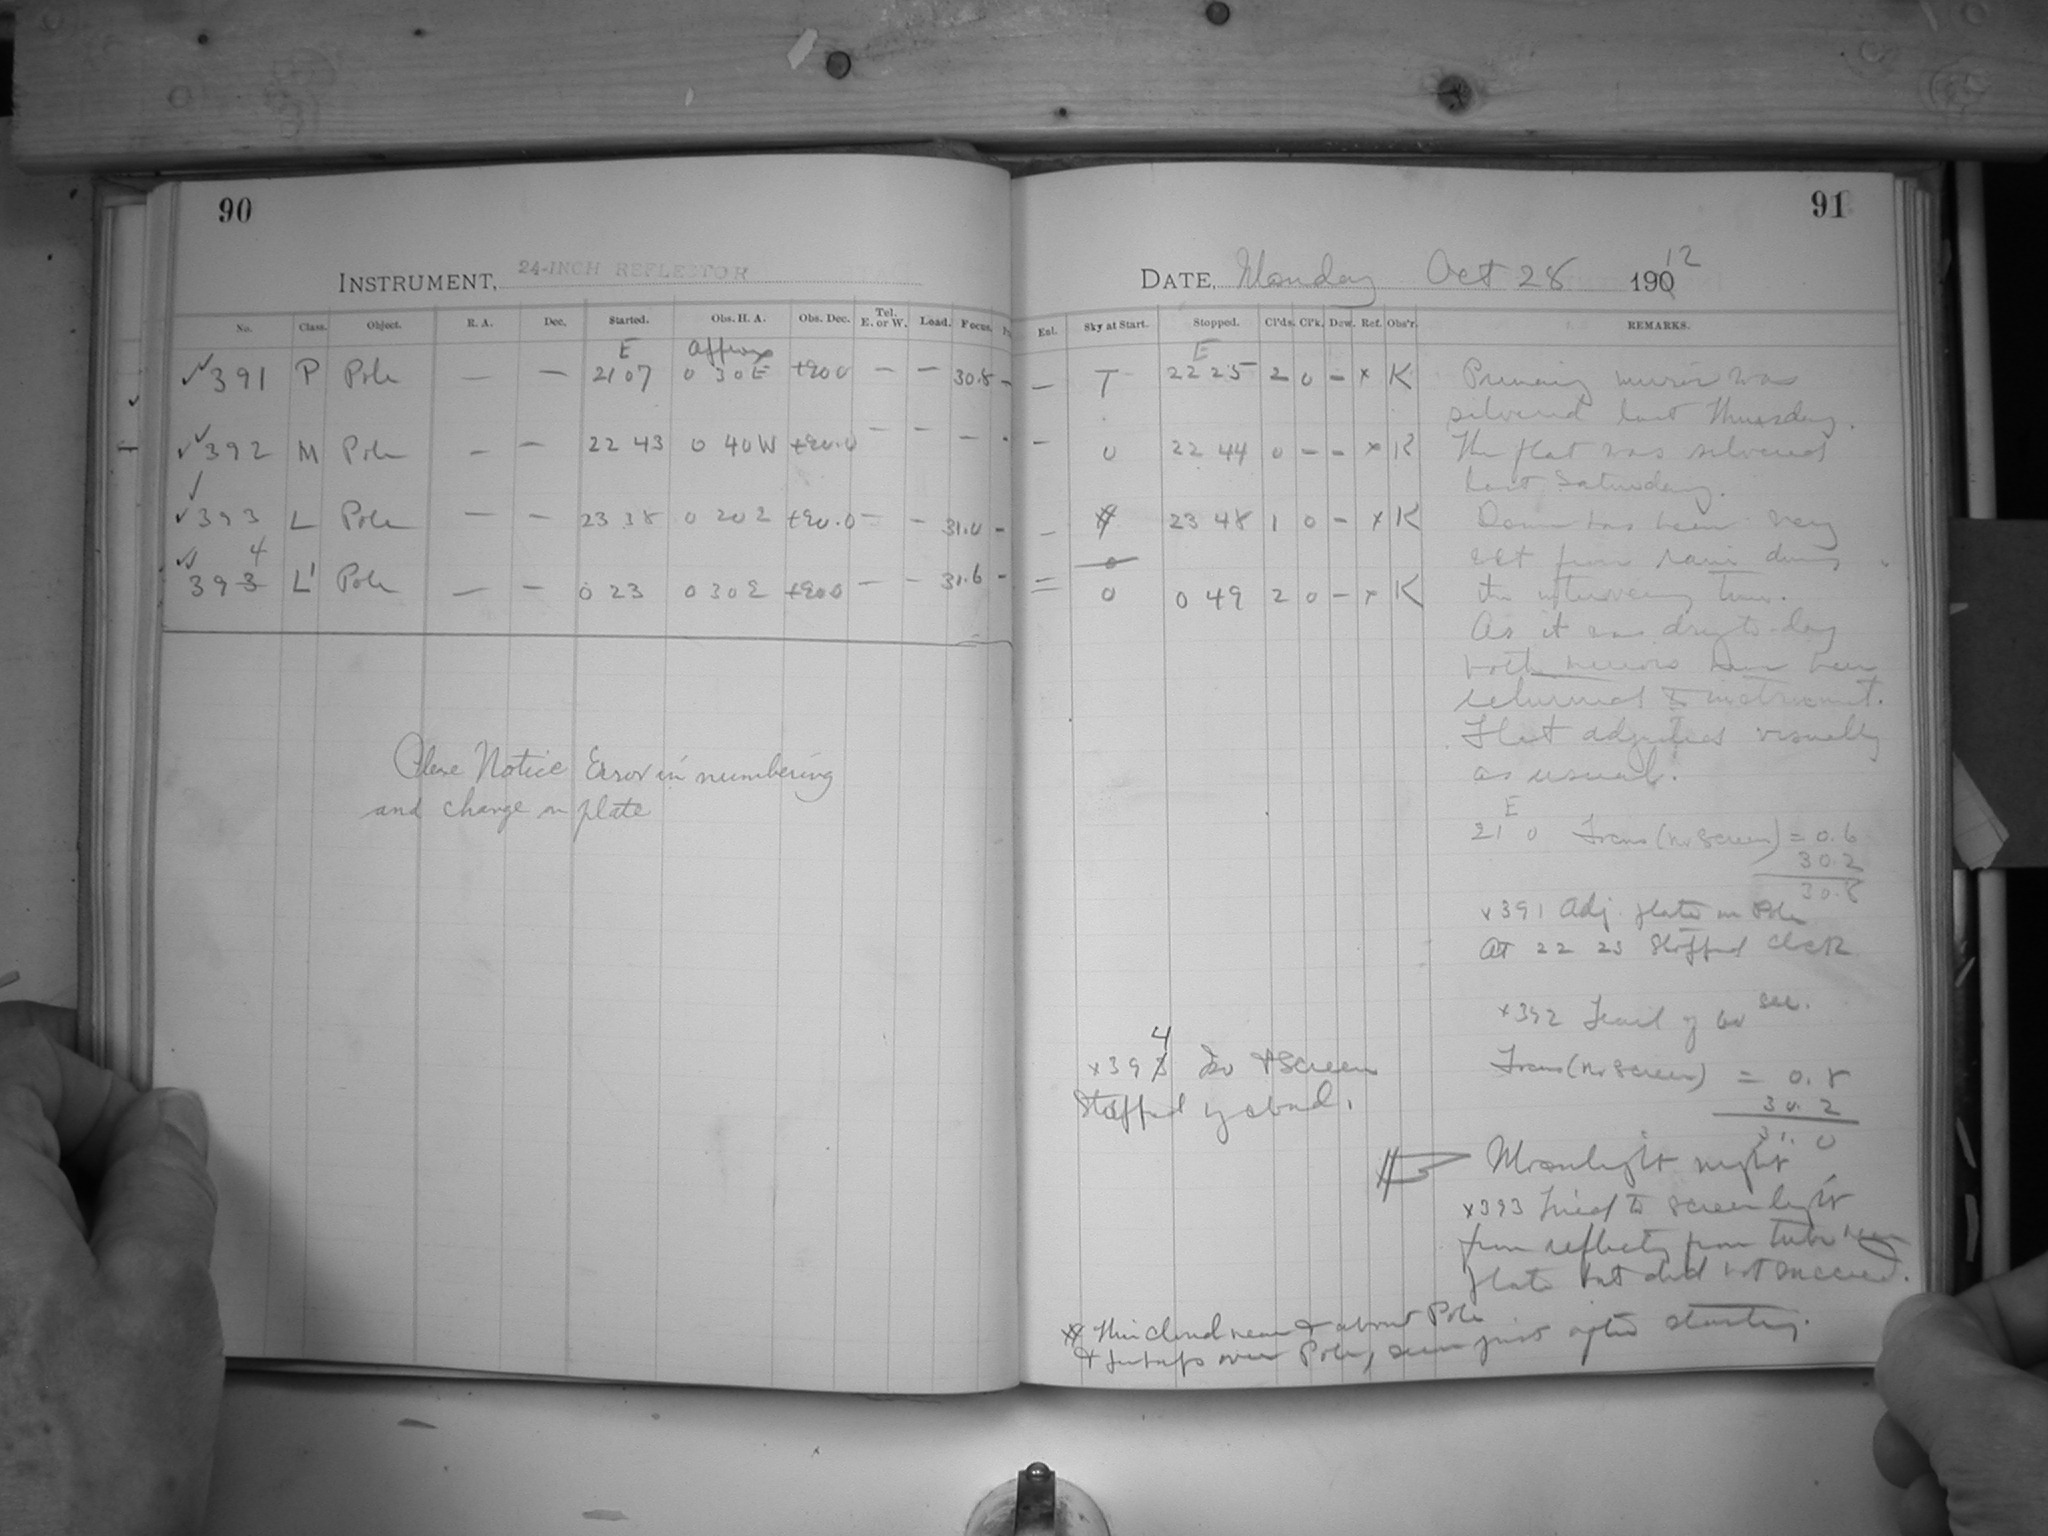 90
INSTRUMENT, 24-INCH REFLECTOR
No. Class. Object. R. A. Dec. Started. Obs. H. A. Obs. Dec. Tel. E. or W. Load. Focus.
E Approx
391 P Pole — — 21 07 0 30 E +90 0 — — 30.8 -
392 M Pole — — 22 43 0 40 W +90.0 — — -
393 L Pole — — 23 38 0 20 E +90.0 — — 31.0 -
4
393 L' Pole — — 0 23 0 30 E +90 0 — — 31.6 -
Please Notice Error in numbering
and change on plate
91
DATE, Monday Oct 28 190 12
Enl. Sky at Start. Stopped. Cl'ds. Cl'k. Dew. Ref. Obs'r. REMARKS.
E
— T 22 25 2 0 - x K
— 0 22 44 0 - - x K
— 23 48 1 0 - x K
0
= 0 0 49 2 0 - x K
Primary mirror was
silvered last Thursday.
The flat was silvered
last Saturday.
Dome has been very
wet from rain during
the intervening time.
As it was dry to-day
both mirrors have been
returned to instrument.
Flat adjusted visually
as usual.
E
21 0 Focus (no screen) = 0.6
30.2
30.8
x391 Adj. plate on Pole
At 22 25 Stopped Clock
x392 Trail of 60 sec.
Focus (no screen) = 0.8
30.2
31.0
4
x393 Iso + Screen
Stopped by cloud.
Moonlight night
x393 Tried to screen light
from reflecting from tube near
plate but did not succeed.
Thin cloud near & about Pole
& perhaps over Pole, seen just after starting.